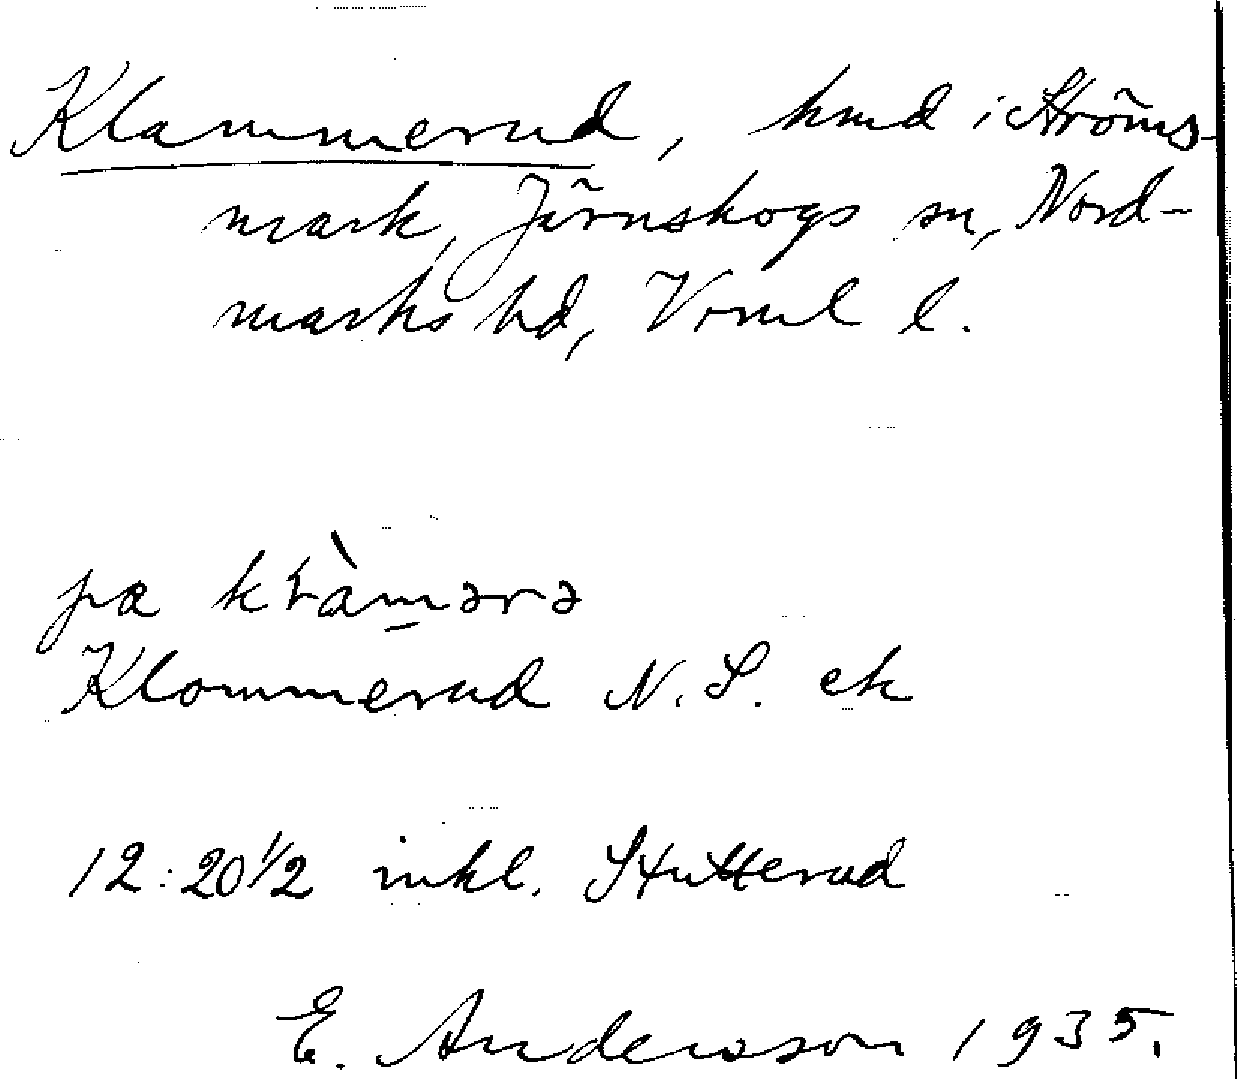 Klammerud, hmd i Ströms-
mark, Järnskogs sn, Nord-
marks hd, Vrml l.
pa kɽàmərə
Klommerud N. S. ek
12:20 1/2 inkl. Stutterud
E. Andersson 1935.